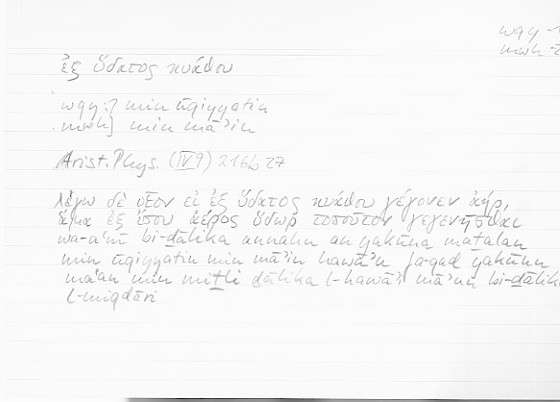 wqy-
mwh-
ἐξ ὕδατος κυάθου
wqy:] min ūqiyyatin
mwh] min māʾin
Arist. Phys. (IV 9) 216b27
λέγω δὲ οἷον εἰ ἐξ ὕδατος κυάθου γέγονεν ἀήρ,
ἅμα ἐξ ἴσου ἀέρος ὕδωρ τοσοῦτον γεγενῆσθαι
wa-aʿnī bi-ḏālika annahu an yakūna maṯalan
min ūqiyyatin min māʾin hawāʾu fa-qad yakūnu
māʾan min miṯli ḏālika l-hawāʾi māʾun bi-ḏālika
l-miqdāri